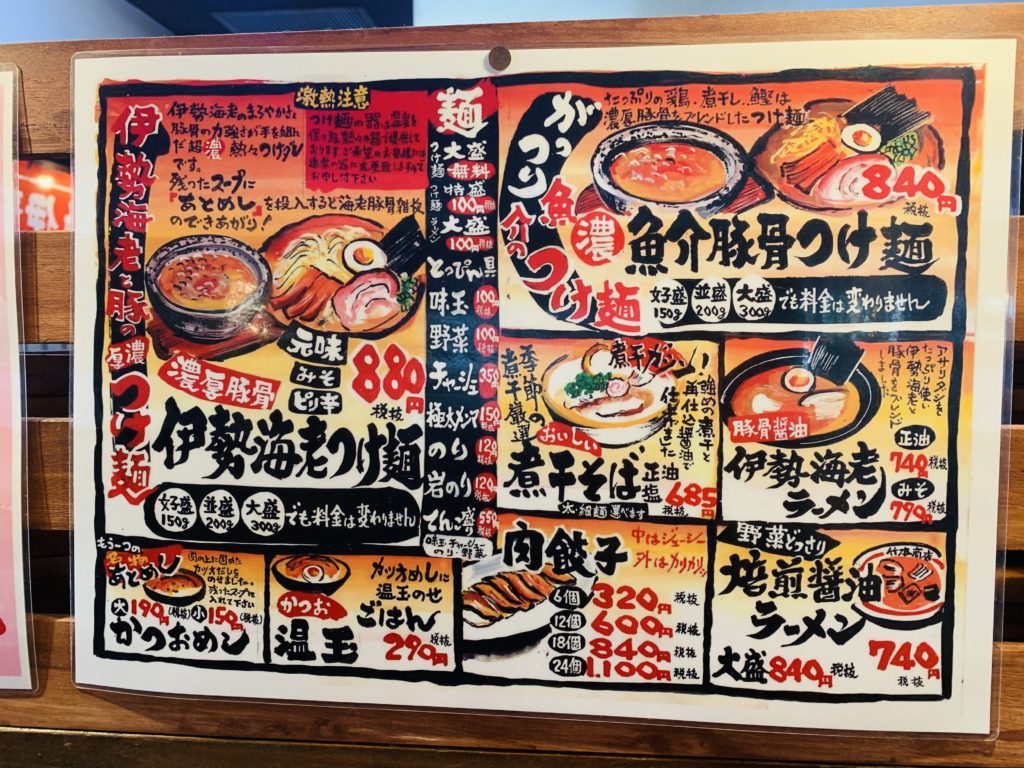 伊勢海老と豚の
濃厚
つけ麺
伊勢海老のまろやかさと
豚骨の力強さが手を組ん
だ超濃熱なつけダレ
です。
残ったスープに
『あとめし』を投入すると海老豚骨雑炊
のできあがり!
激熱注意
つけ麺の器は温度を
お申し付け下さい
元味
みそ
ピリ辛
880円
税抜
濃厚豚骨
伊勢海老つけ麺
少盛
150g
並盛
200g
大盛
300g
でも料金は変わりません
麺
つけ麺
大盛
無料
つけ麺
特盛
100円税抜
ラーメン
大盛
100円税抜
とっぴん具
味玉
100円
税抜
野菜
100円
税抜
チャーシュー
350円
極太メンマ
150円
税抜
のり
120円
税抜
岩のり
120円
税抜
てんこ盛り
550円
税抜
味玉・チャーシュー
のり・野菜
がっつり
魚介の
つけ麺
たっぷりの鶏、煮干し、鰹は
濃厚豚骨をブレンドしたつけ麺!
840円
税抜
濃
魚介豚骨つけ麺
少盛
150g
並盛
200g
大盛
300g
でも料金は変わりません
季節の
煮干厳選
煮干ガツン!
強めの煮干と
再仕込醤油で
仕上ました
おいしい
煮干そば
正油
塩
685円
税抜
太・細麺選べます
アサリ
たっぷり使い
伊勢海老と
豚骨をブレンド
しました
豚骨醤油
伊勢海老
ラーメン
正油
740円
税抜
みそ
790円
税抜
もう一つの
あとめし
肉の上に固めた
カツオだしを
のせました。
残ったスープに
入れて下さい
大190円(税抜)小150円(税抜)
かつおめし
かつお
温玉
ごはん
カツオめしに
温玉のせ
290円
税抜
肉餃子
中はジューシー
外はカリカリッ
6個
320円
税抜
12個
600円
税抜
18個
840円
税抜
24個
1.100円
税抜
野菜どっさり
焙煎醤油
ラーメン
竹本商店
大盛840円
税抜
740円
税抜